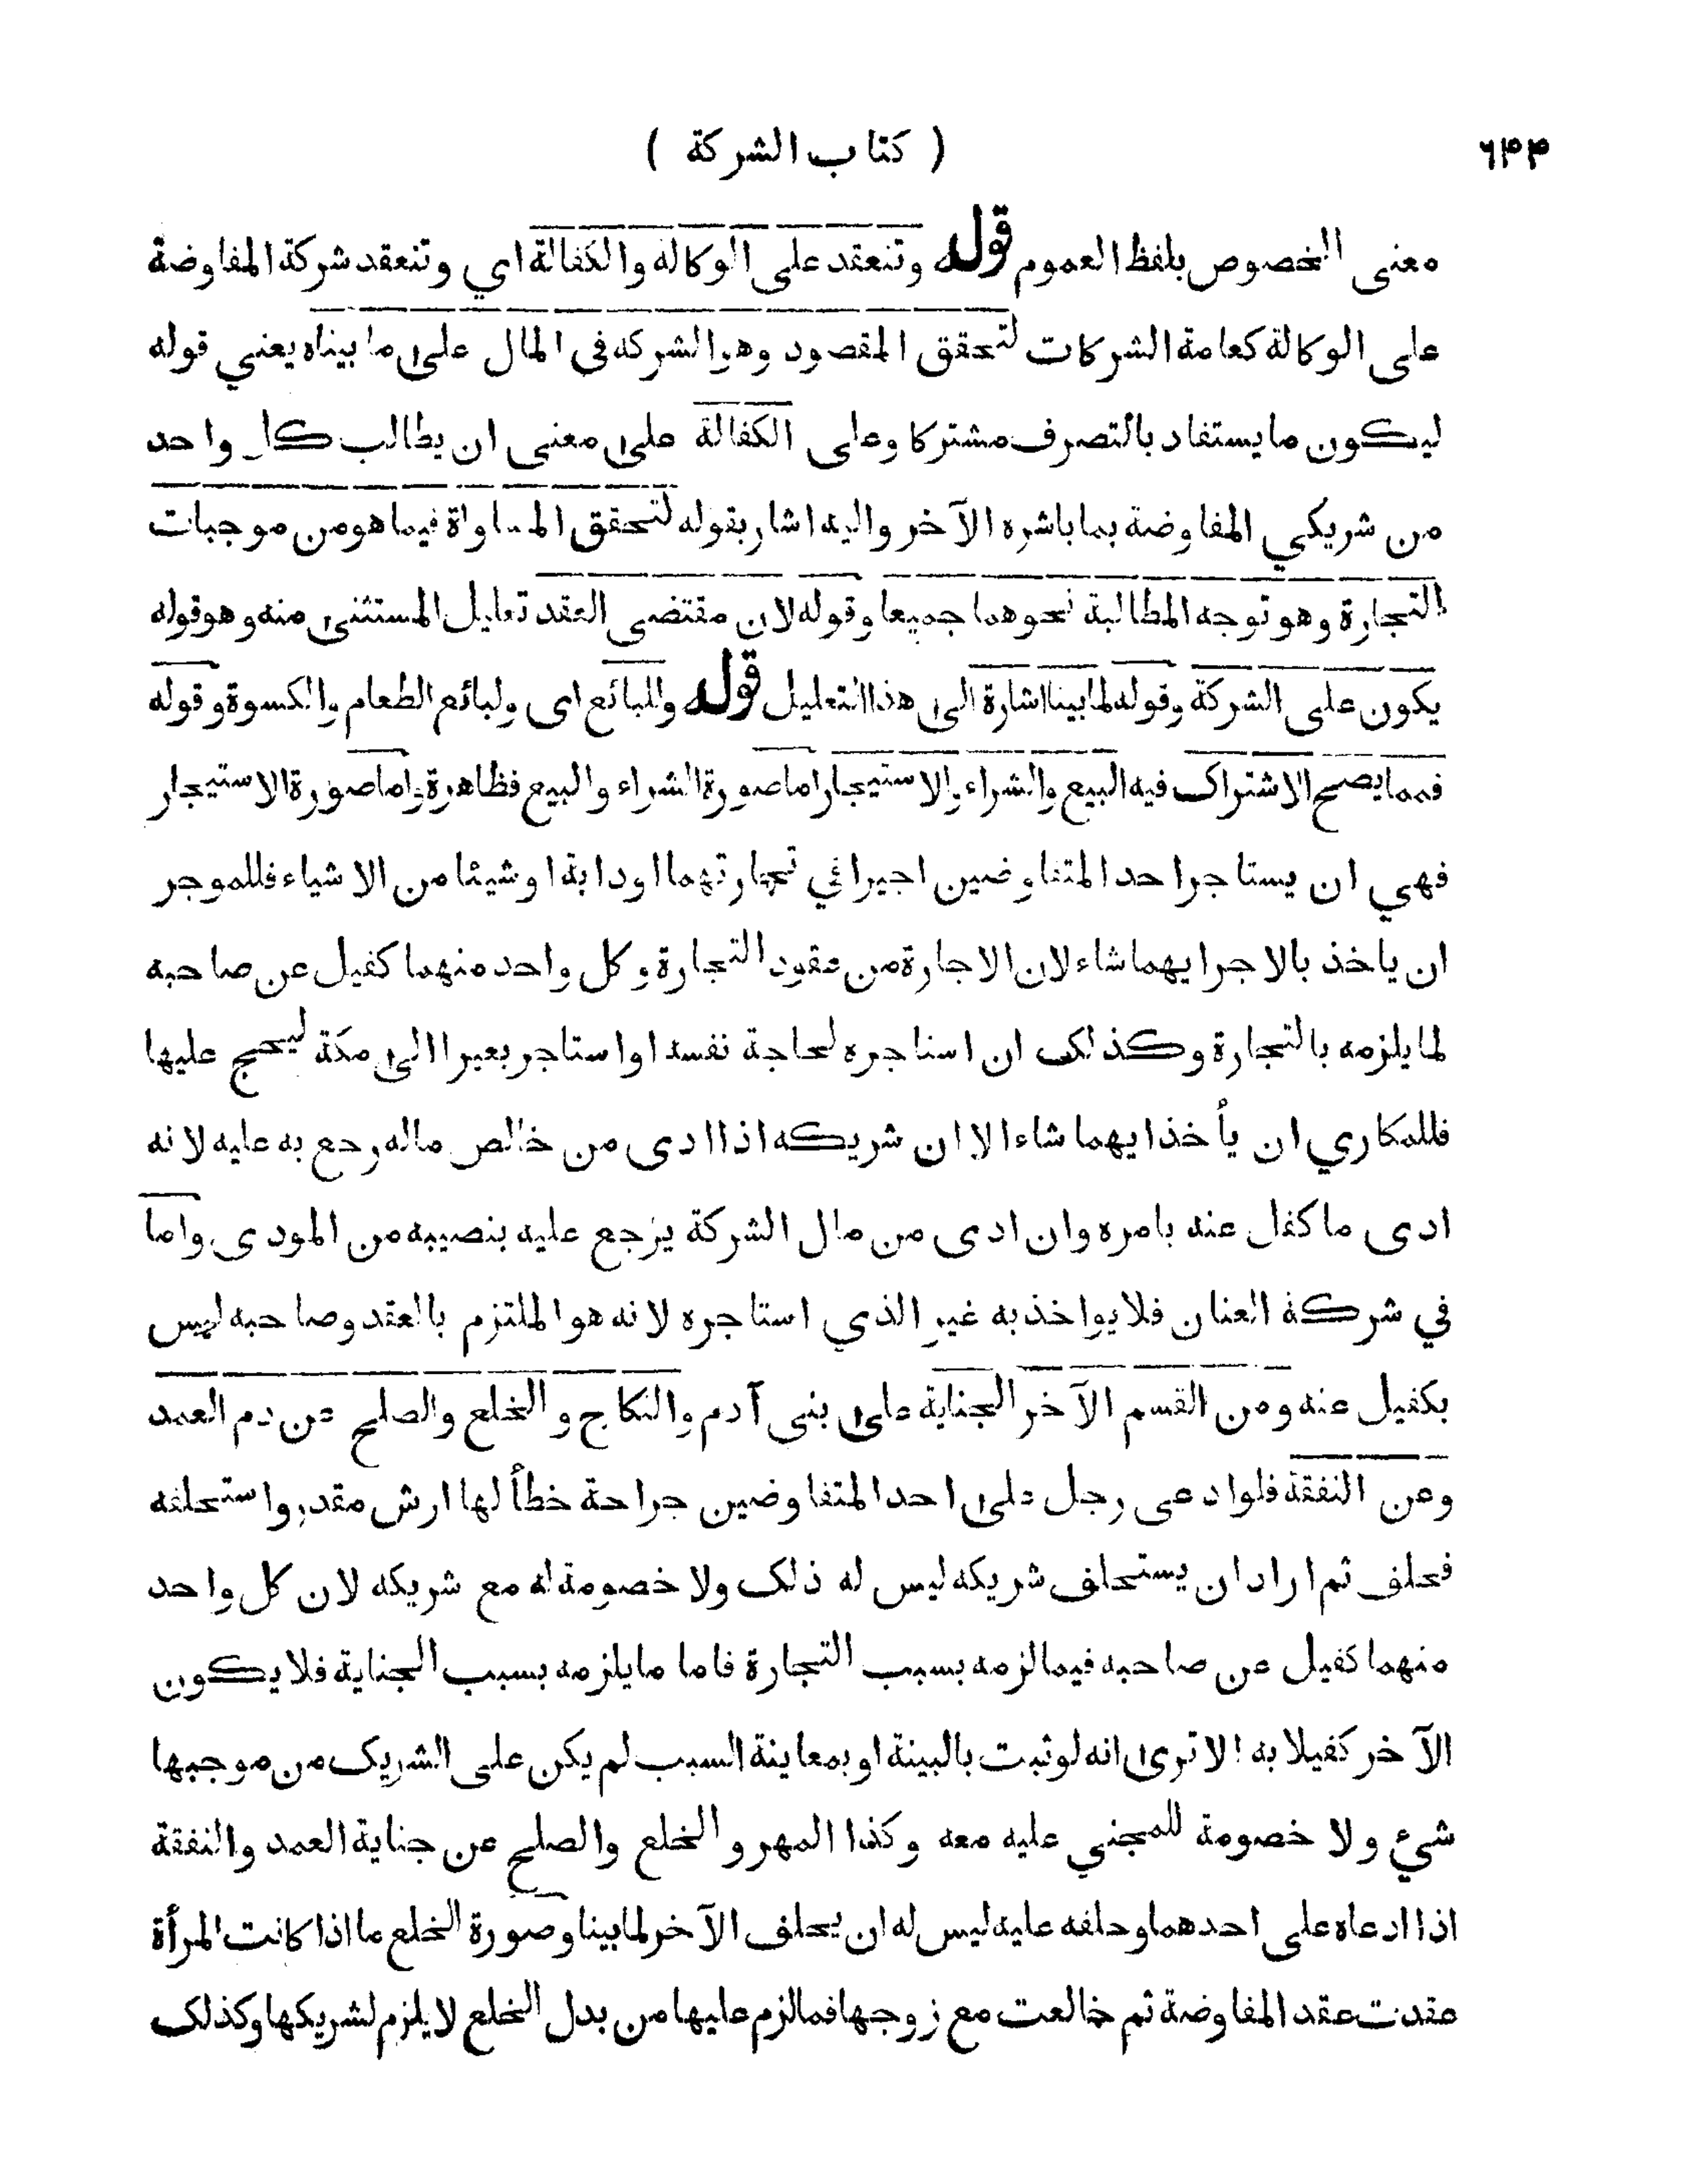 ( كتاب الشركة )
٦٣٣
معنى الخصوص بلفظ العموم قوله وتنعقد على الوكالة والكفالة اي وتنعقد شركة المفاوضة
على الوكالة كعامة الشركات لتحقق المقصود وهو الشركه في المال على ما بيناه يعني قوله
ليكون ما يستفاد بالتصرف مشتركا وعلى الكفالة على معنى ان يطالب كل واحد
من شريكي المفاوضة بما باشره الآخر واليه اشار بقوله لتحقق المساواة فيما هو من موجبات
التجارة وهو توجه المطالبة نحوهما جميعا وقوله لان مقتضى العقد تعليل المستثنى منه وهو قوله
يكون على الشركة وقوله لما بينا اشارة الى هذا التعليل قوله وللبائع اى ولبائع الطعام والكسوة وقوله
فمما يصح الاشتراك فيه البيع والشراء والاستيجار اما صورة الشراء والبيع فظاهرة واما صورة الاستيجار
فهي ان يستاجر احد المتفاوضين اجيرا في تجارتهما او دابة او شيئا من الاشياء فللموجر
ان ياخذ بالاجر ايهما شاء لان الاجارة من عقود التجارة وكل واحد منهما كفيل عن صاحبه
لما يلزمه بالتجارة وكذلك ان استاجره لحاجة نفسه او استاجر بعيرا الى مكة ليحج عليها
فللمكاري ان يأخذ ايهما شاء الا ان شريكه اذا ادى من خالص ماله رجع به عليه لانه
ادى ما كفل عنه بامره وان ادى من مال الشركة يرجع عليه بنصيبه من المودى واما
في شركة العنان فلا يواخذ به غير الذي استاجره لانه هو الملتزم بالعقد وصاحبه ليس
بكفيل عنه ومن القسم الآخر الجناية على بنى آدم والنكاح والخلع والصلح عن دم العمد
وعن النفقة فلو ادعى رجل على احد المتفاوضين جراحة خطأ لها ارش مقدر واستحلفه
فحلف ثم اراد ان يستحلف شريكه ليس له ذلك ولا خصومة له مع شريكه لان كل واحد
منهما كفيل عن صاحبه فيما لزمه بسبب التجارة فاما ما يلزمه بسبب الجناية فلا يكون
الآخر كفيلا به الا ترى انه لو ثبت بالبينة او بمعاينة السبب لم يكن على الشريك من موجبها
شيء ولا خصومة للمجني عليه معه وكذا المهر والخلع والصلح عن جناية العمد والنفقة
اذا ادعاه على احدهما وحلفه عليه ليس له ان يحلف الآخر لما بينا وصورة الخلع ما اذا كانت المرأة
عقدت عقد المفاوضة ثم خالعت مع زوجها فما لزم عليها من بدل الخلع لا يلزم لشريكها وكذلك